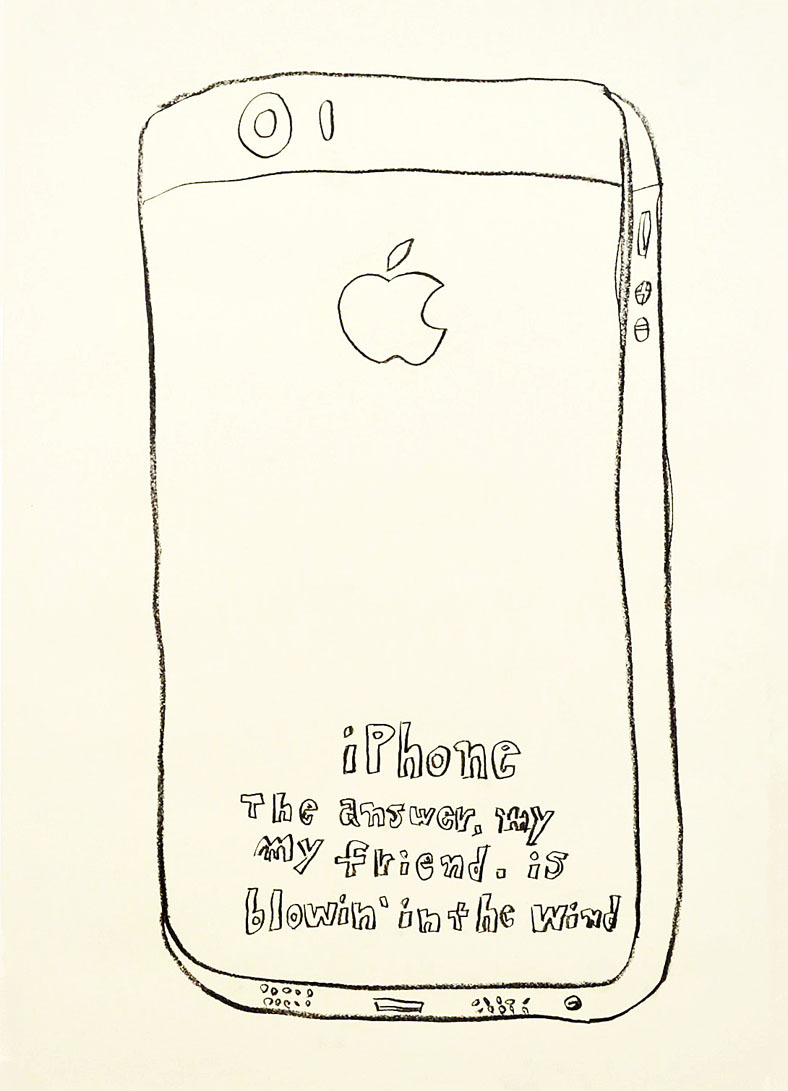 iPhone
The answer, my
my friend. is
blowin' in the wind